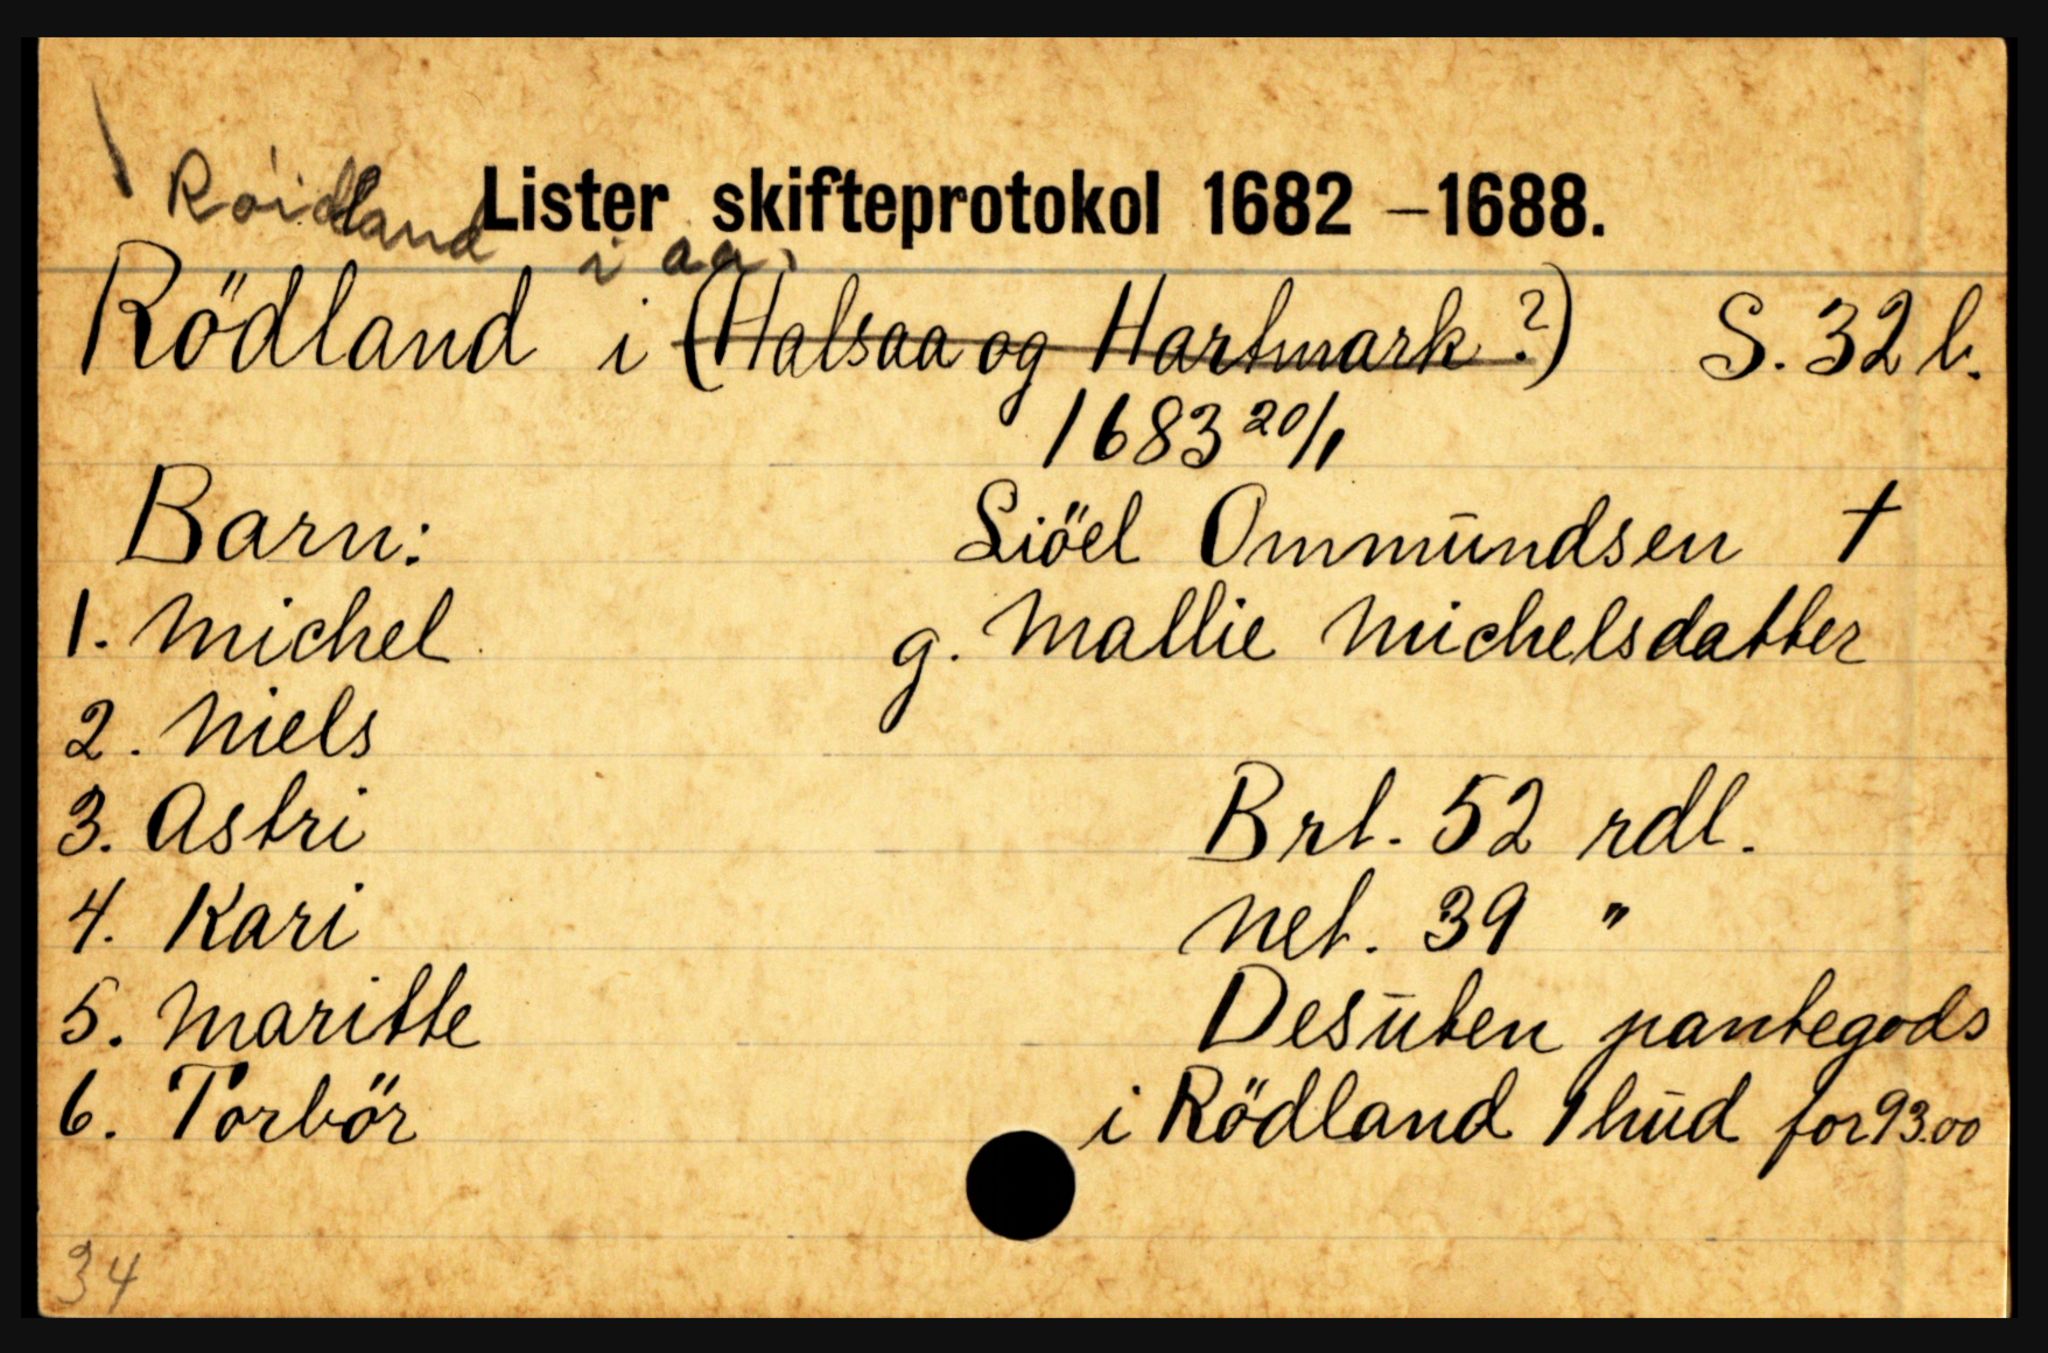 Lister skifteprotokol 1682 – 1688.
Röidland i aa.
Rödland i (Halsaa og Hartmark?) S. 32 b.
1683 20/1
Barn: Siöel Ommūndsen †
1. Michel g. Mallie Michelsdatter
2. Niels
3. Astri Brt. 52 rdl.
4. Kari Net. 39 "
5. Maritte Desūten pantegods
6. Torbör i Rödland 1 hūd for 93.00
34